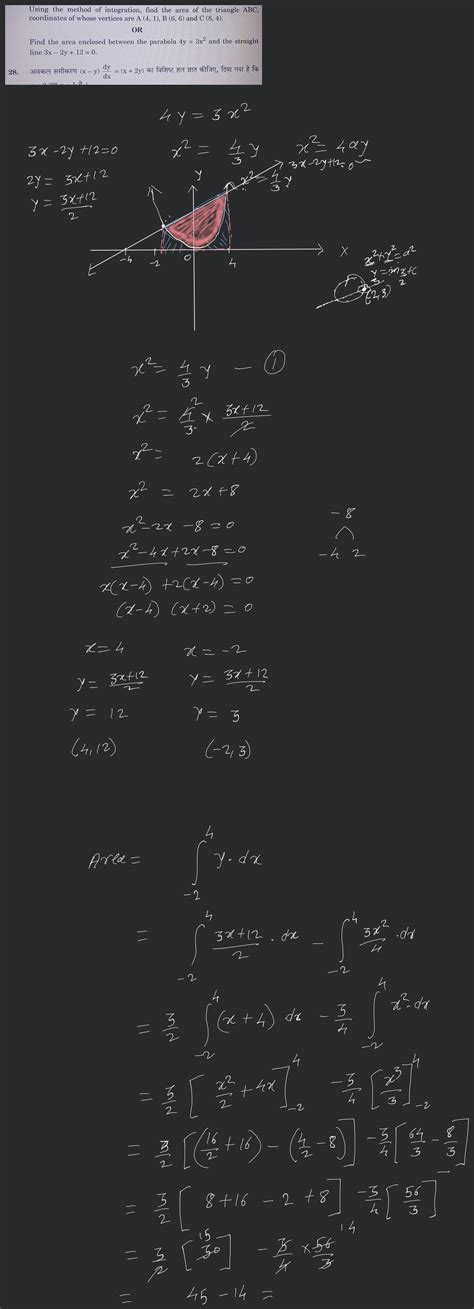 Using the method of integration, find the area of the triangle ABC,
coordinates of whose vertices are A (4, 1), B (6, 6) and C (8, 4).
OR
Find the area enclosed between the parabola 4y = 3x² and the straight
line 3x – 2y + 12 = 0.
28. अवकल समीकरण (x – y) dy/dx = (x + 2y) का विशिष्ट हल ज्ञात कीजिए, दिया गया है कि
4y = 3x²
3x - 2y + 12 = 0
x² = 4/3 y
x² = 4ay
2y = 3x + 12
y = (3x+12)/2
3x-2y+12=0
x² = 4/3 y
y
-4 -2 0 4 x
x² + y² = a²
y = mx + c
(2,3)
x² = 4/3 y — ①
x² = 4/3 × (3x+12)/2
2
x² = 2(x+4)
x² = 2x+8
x² - 2x - 8 = 0
x² - 4x + 2x - 8 = 0
x(x-4) + 2(x-4) = 0
(x-4) (x+2) = 0
-8
-4 2
x = 4
x = -2
y = (3x+12)/2
y = (3x+12)/2
y = 12
y = 3
(4,12)
(-2,3)
Area = ∫₋₂⁴ y·dx
= ∫₋₂⁴ (3x+12)/2 · dx - ∫₋₂⁴ 3x²/4 · dx
= 3/2 ∫₋₂⁴ (x+4) dx - 3/4 ∫₋₂⁴ x²·dx
= 3/2 [x²/2 + 4x]₋₂⁴ - 3/4 [x³/3]₋₂⁴
= 3/2 [(16/2 + 16) - (4/2 - 8)] - 3/4 [64/3 - 8/3]
= 3/2 [8 + 16 - 2 + 8] - 3/4 [56/3]
= 3/2 [30] - 3/4 × 56/3
15 14
= 45 - 14 =